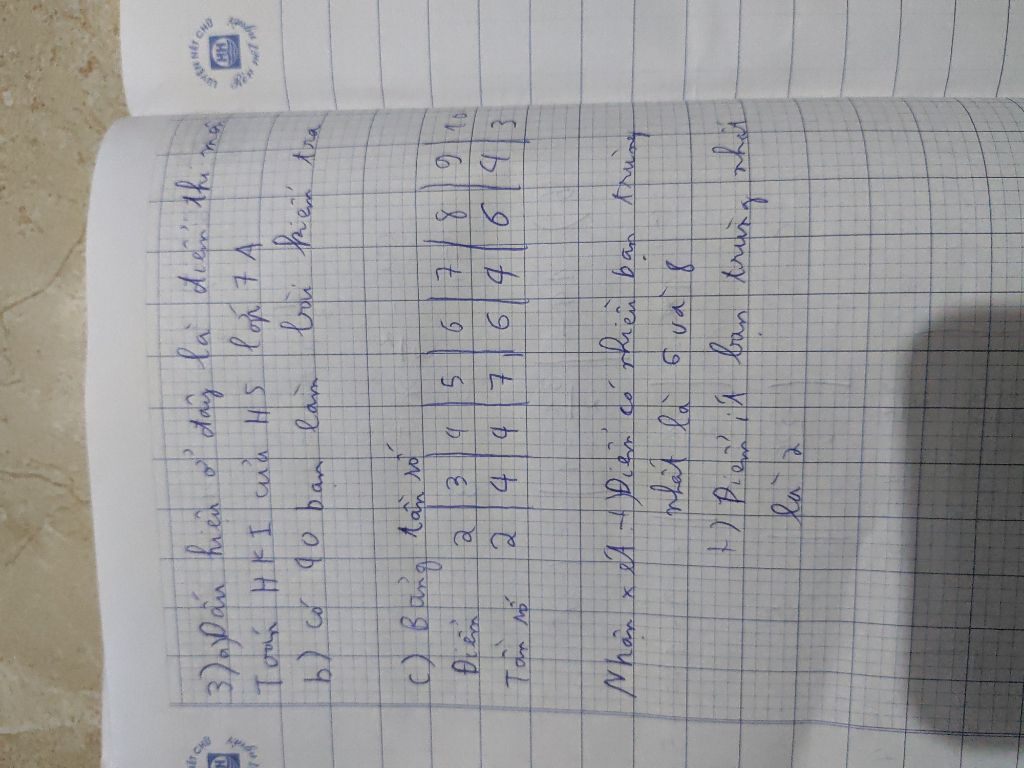 3) a) Dấu hiệu ở đây là điểm thi mô
Toán HKI của HS lớp 7A
b) có 40 bạn làm bài kiểm tra
c) Bảng tần số
Điểm 2 3 4 5 6 7 8 9 10
Tần số 2 4 4 7 6 4 6 4 3
Nhận xét +) Điểm có nhiều bạn trùng
nhất là 6 và 8
+) Điểm ít bạn trùng nhất
là 2